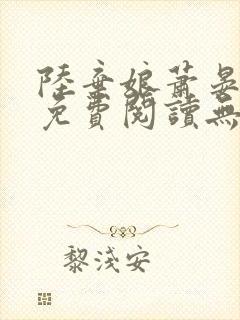 陸棄娘蕭晏
免費閱讀無
黎淺安